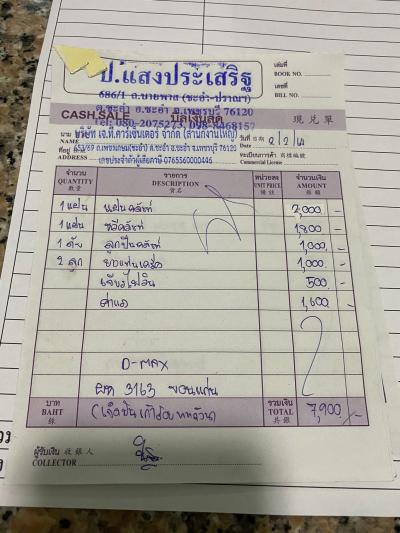 ป.แสงประเสริฐ
686/1 ถ.บายพาส (ชะอำ-ปราณา)
ต.ชะอำ อ.ชะอำ จ.เพชรบุรี 76120
Tel: 080-2075273, 098-8468157
เล่มที่
BOOK NO.
เลขที่
BILL NO.
CASH SALE บิลเงินสด 現兑單
นาม บริษัท เจ.ที.คาร์เซ็นเตอร์ จำกัด (สำนักงานใหญ่) วันที่ 日期 2/2/64
NAME Date
ที่อยู่ 653/69 ถ.เพชรเกษม(ชะอำ) ต.ชะอำ อ.ชะอำ จ.เพชรบุรี 76120 ทะเบียนการค้า 商標編號
ADDRESS เลขประจำตัวผู้เสียภาษี 0765560000446 Commercial License
จำนวน รายการ หน่วยละ จำนวนเงิน
QUANTITY DESCRIPTION UNIT PRICE AMOUNT
數量 貨名 價銀
1 แผ่น แผ่นคลัทช์ 2,000 -
1 แผ่น หวีคลัทช์ 1,800 -
1 ตับ ลูกปืนคลัทช์ 1,000 -
2 ลูก ยางแท่นเครื่อง 1,000 -
เจียรไฟลวีล 500 -
ค่าแรง 1,600 -
D-MAX
ผต 3163 ขอนแก่น
บาท รวมเงิน
BAHT (เจ็ดพันเก้าร้อยบาทถ้วน) TOTAL 7,900 -
銖 共銀
ผู้รับเงิน 收銀人
COLLECTOR